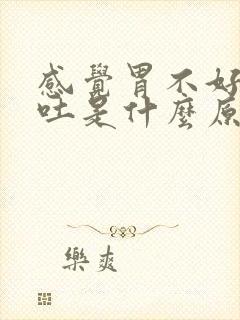 感覺胃不好
吐是什麼原
樂爽